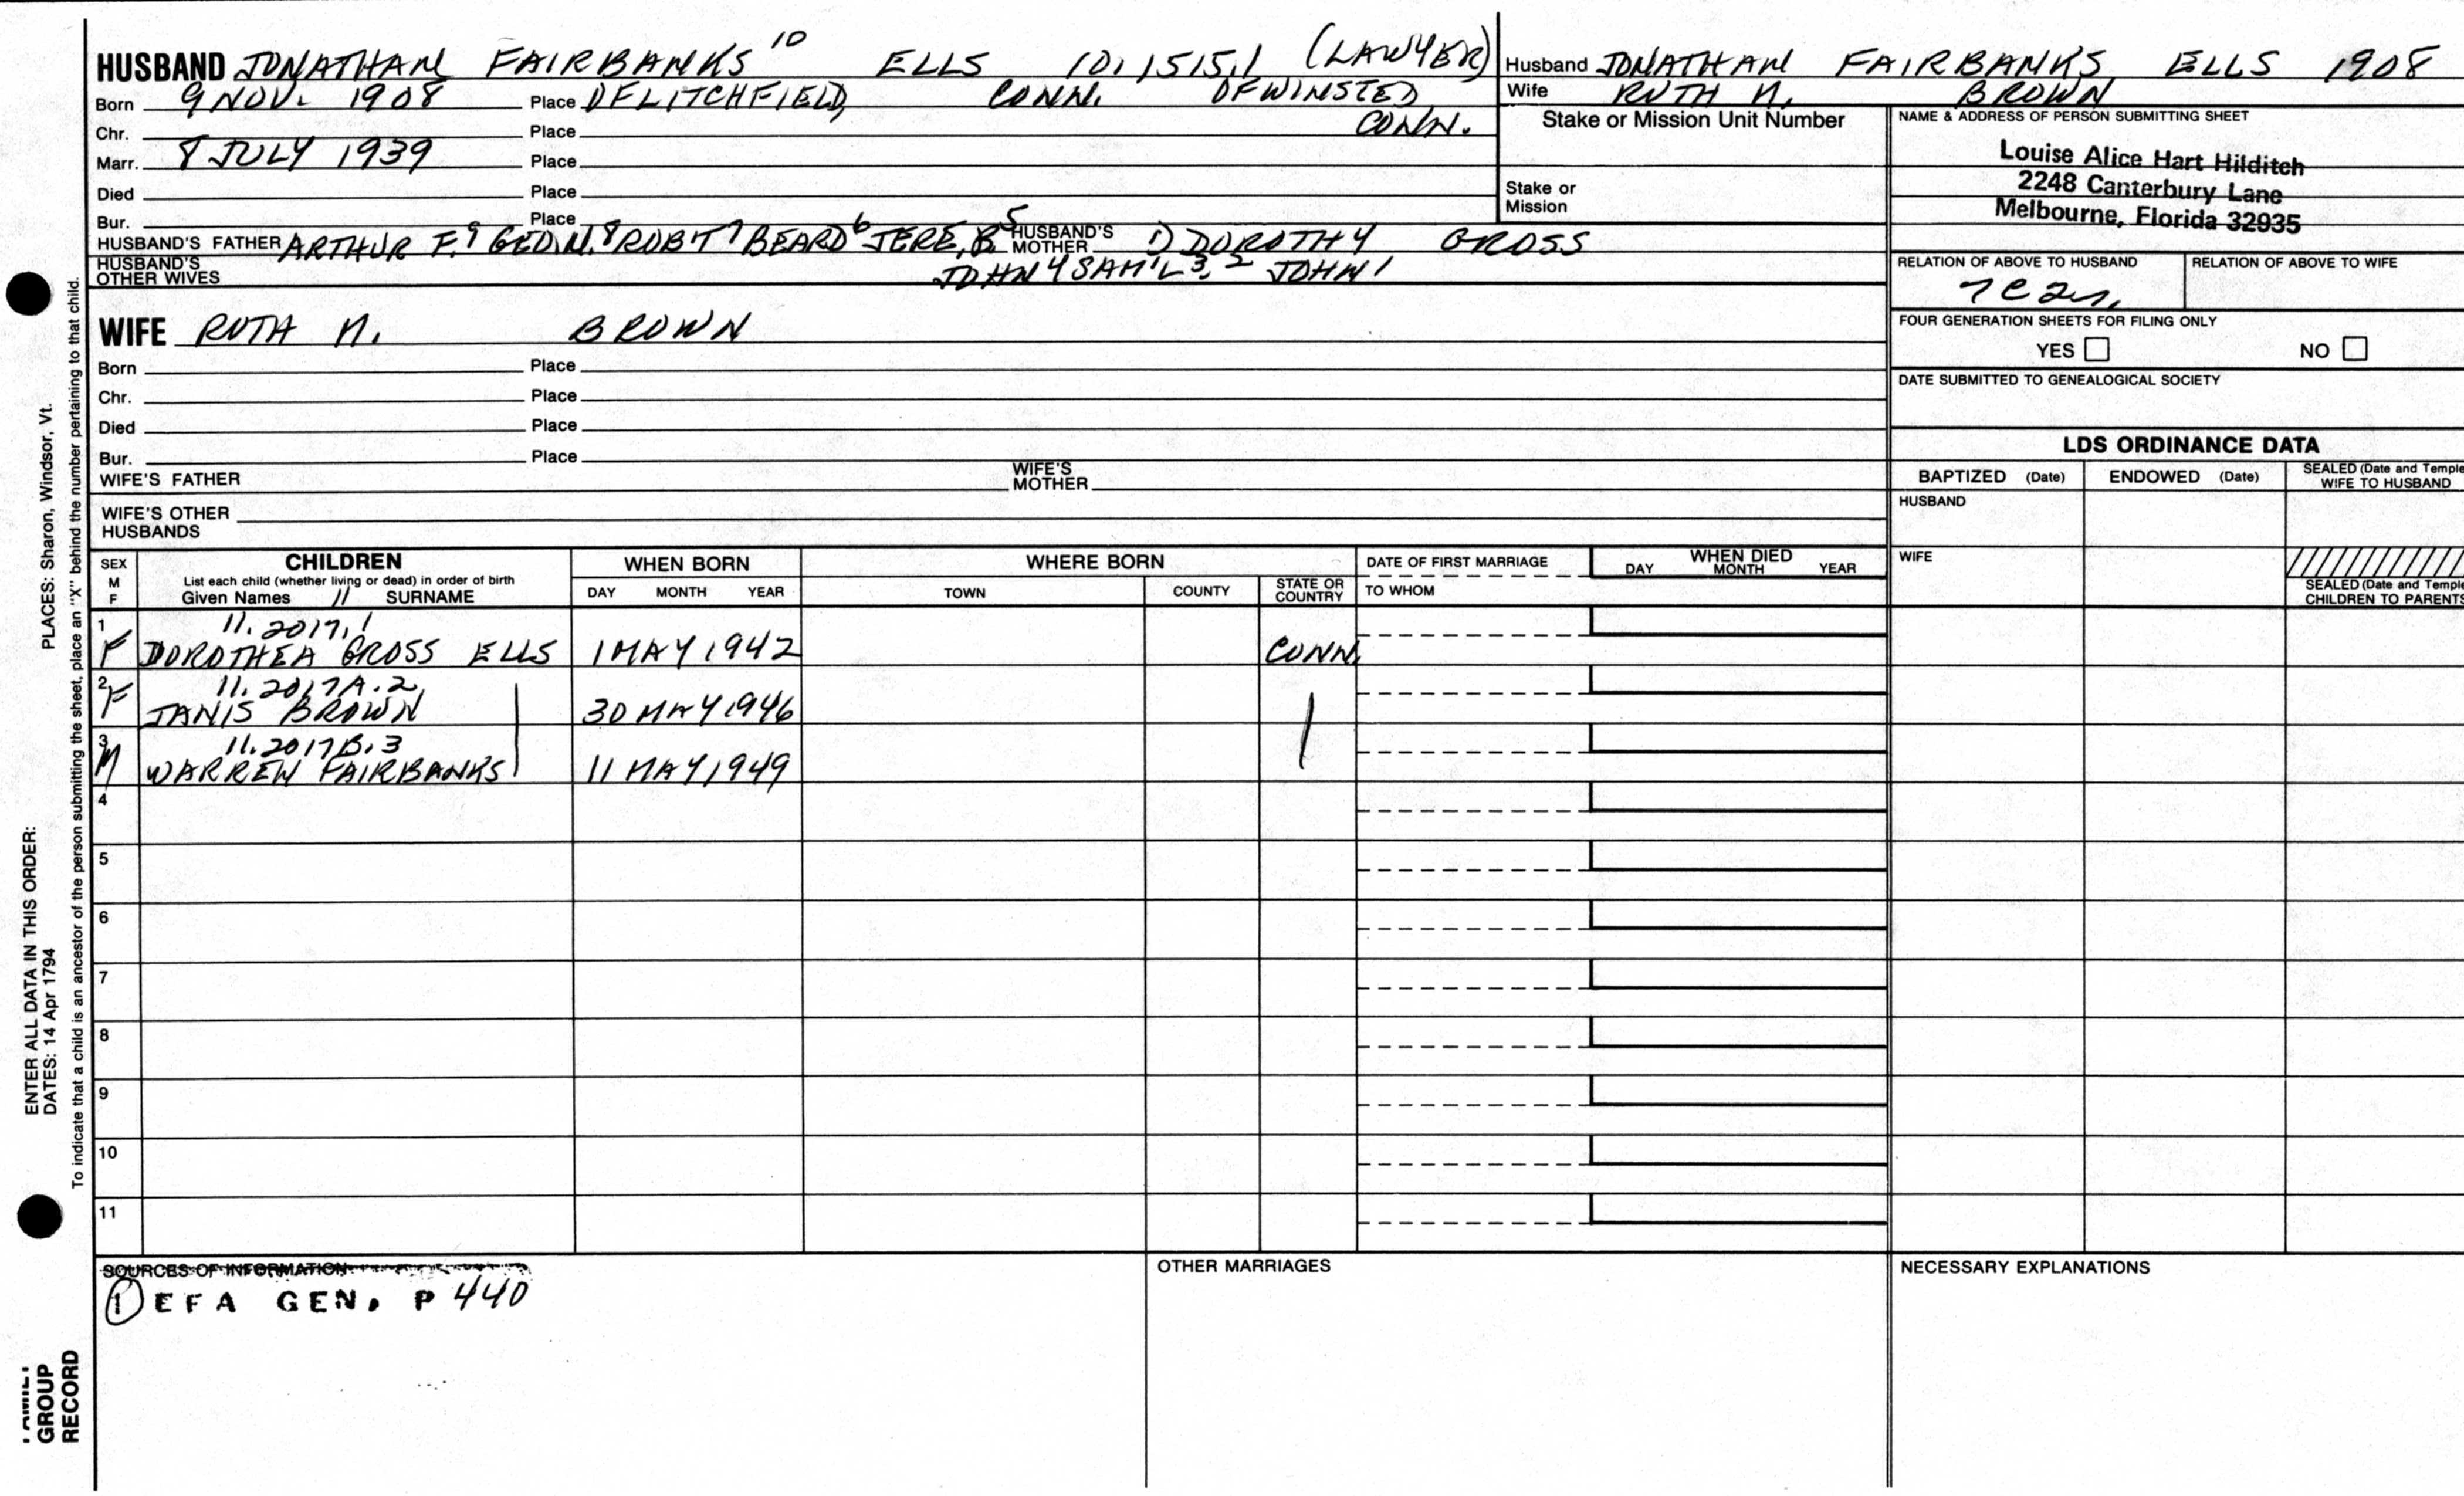 HUSBAND JONATHAN FAIRBANKS 10 ELLS 10.1515.1 (LAWYER)
Born 9 NOV. 1908 Place OF LITCHFIELD, CONN. OF WINSTED
Chr. Place CONN.
Marr. 8 JULY 1939 Place
Died Place
Bur. Place
HUSBAND'S FATHER ARTHUR F. 9 GEO. N. 8 ROB'T 7 BEARD 6 JERE. B. 5 HUSBAND'S MOTHER 1) DOROTHY GROSS
HUSBAND'S OTHER WIVES JOHN 4 SAM'L 3, 2 JOHN 1
WIFE RUTH N. BROWN
Born Place
Chr. Place
Died Place
Bur. Place
WIFE'S FATHER WIFE'S MOTHER
WIFE'S OTHER HUSBANDS
Husband JONATHAN FAIRBANKS ELLS 1908
Wife RUTH N. BROWN
Stake or Mission Unit Number
Stake or
Mission
NAME & ADDRESS OF PERSON SUBMITTING SHEET
Louise Alice Hart Hilditch
2248 Canterbury Lane
Melbourne, Florida 32935
RELATION OF ABOVE TO HUSBAND RELATION OF ABOVE TO WIFE
FOUR GENERATION SHEETS FOR FILING ONLY
YES NO
DATE SUBMITTED TO GENEALOGICAL SOCIETY
LDS ORDINANCE DATA
BAPTIZED (Date) ENDOWED (Date) SEALED (Date and Temple
WIFE TO HUSBAND
HUSBAND
WIFE
SEALED (Date and Temple
CHILDREN TO PARENTS
SEX M F CHILDREN WHEN BORN WHERE BORN DATE OF FIRST MARRIAGE WHEN DIED
List each child (whether living or dead) in order of birth
Given Names 11 SURNAME DAY MONTH YEAR TOWN COUNTY STATE OR COUNTRY TO WHOM DAY MONTH YEAR
1 11.2017.1
F DOROTHEA GROSS ELLS 1 MAY 1942 CONN.
2 11.2017A.2
F JANIS BROWN 30 MAY 1946
3 11.2017B.3
M WARREN FAIRBANKS 11 MAY 1949
4
5
6
7
8
9
10
11
SOURCES OF INFORMATION OTHER MARRIAGES NECESSARY EXPLANATIONS
1 EFA GEN. P 440
ENTER ALL DATA IN THIS ORDER:
DATES: 14 Apr 1794 PLACES: Sharon, Windsor, Vt.
To indicate that a child is an ancestor of the person submitting the sheet, place an "X" behind the number pertaining to that child.
FAMILY
GROUP
RECORD